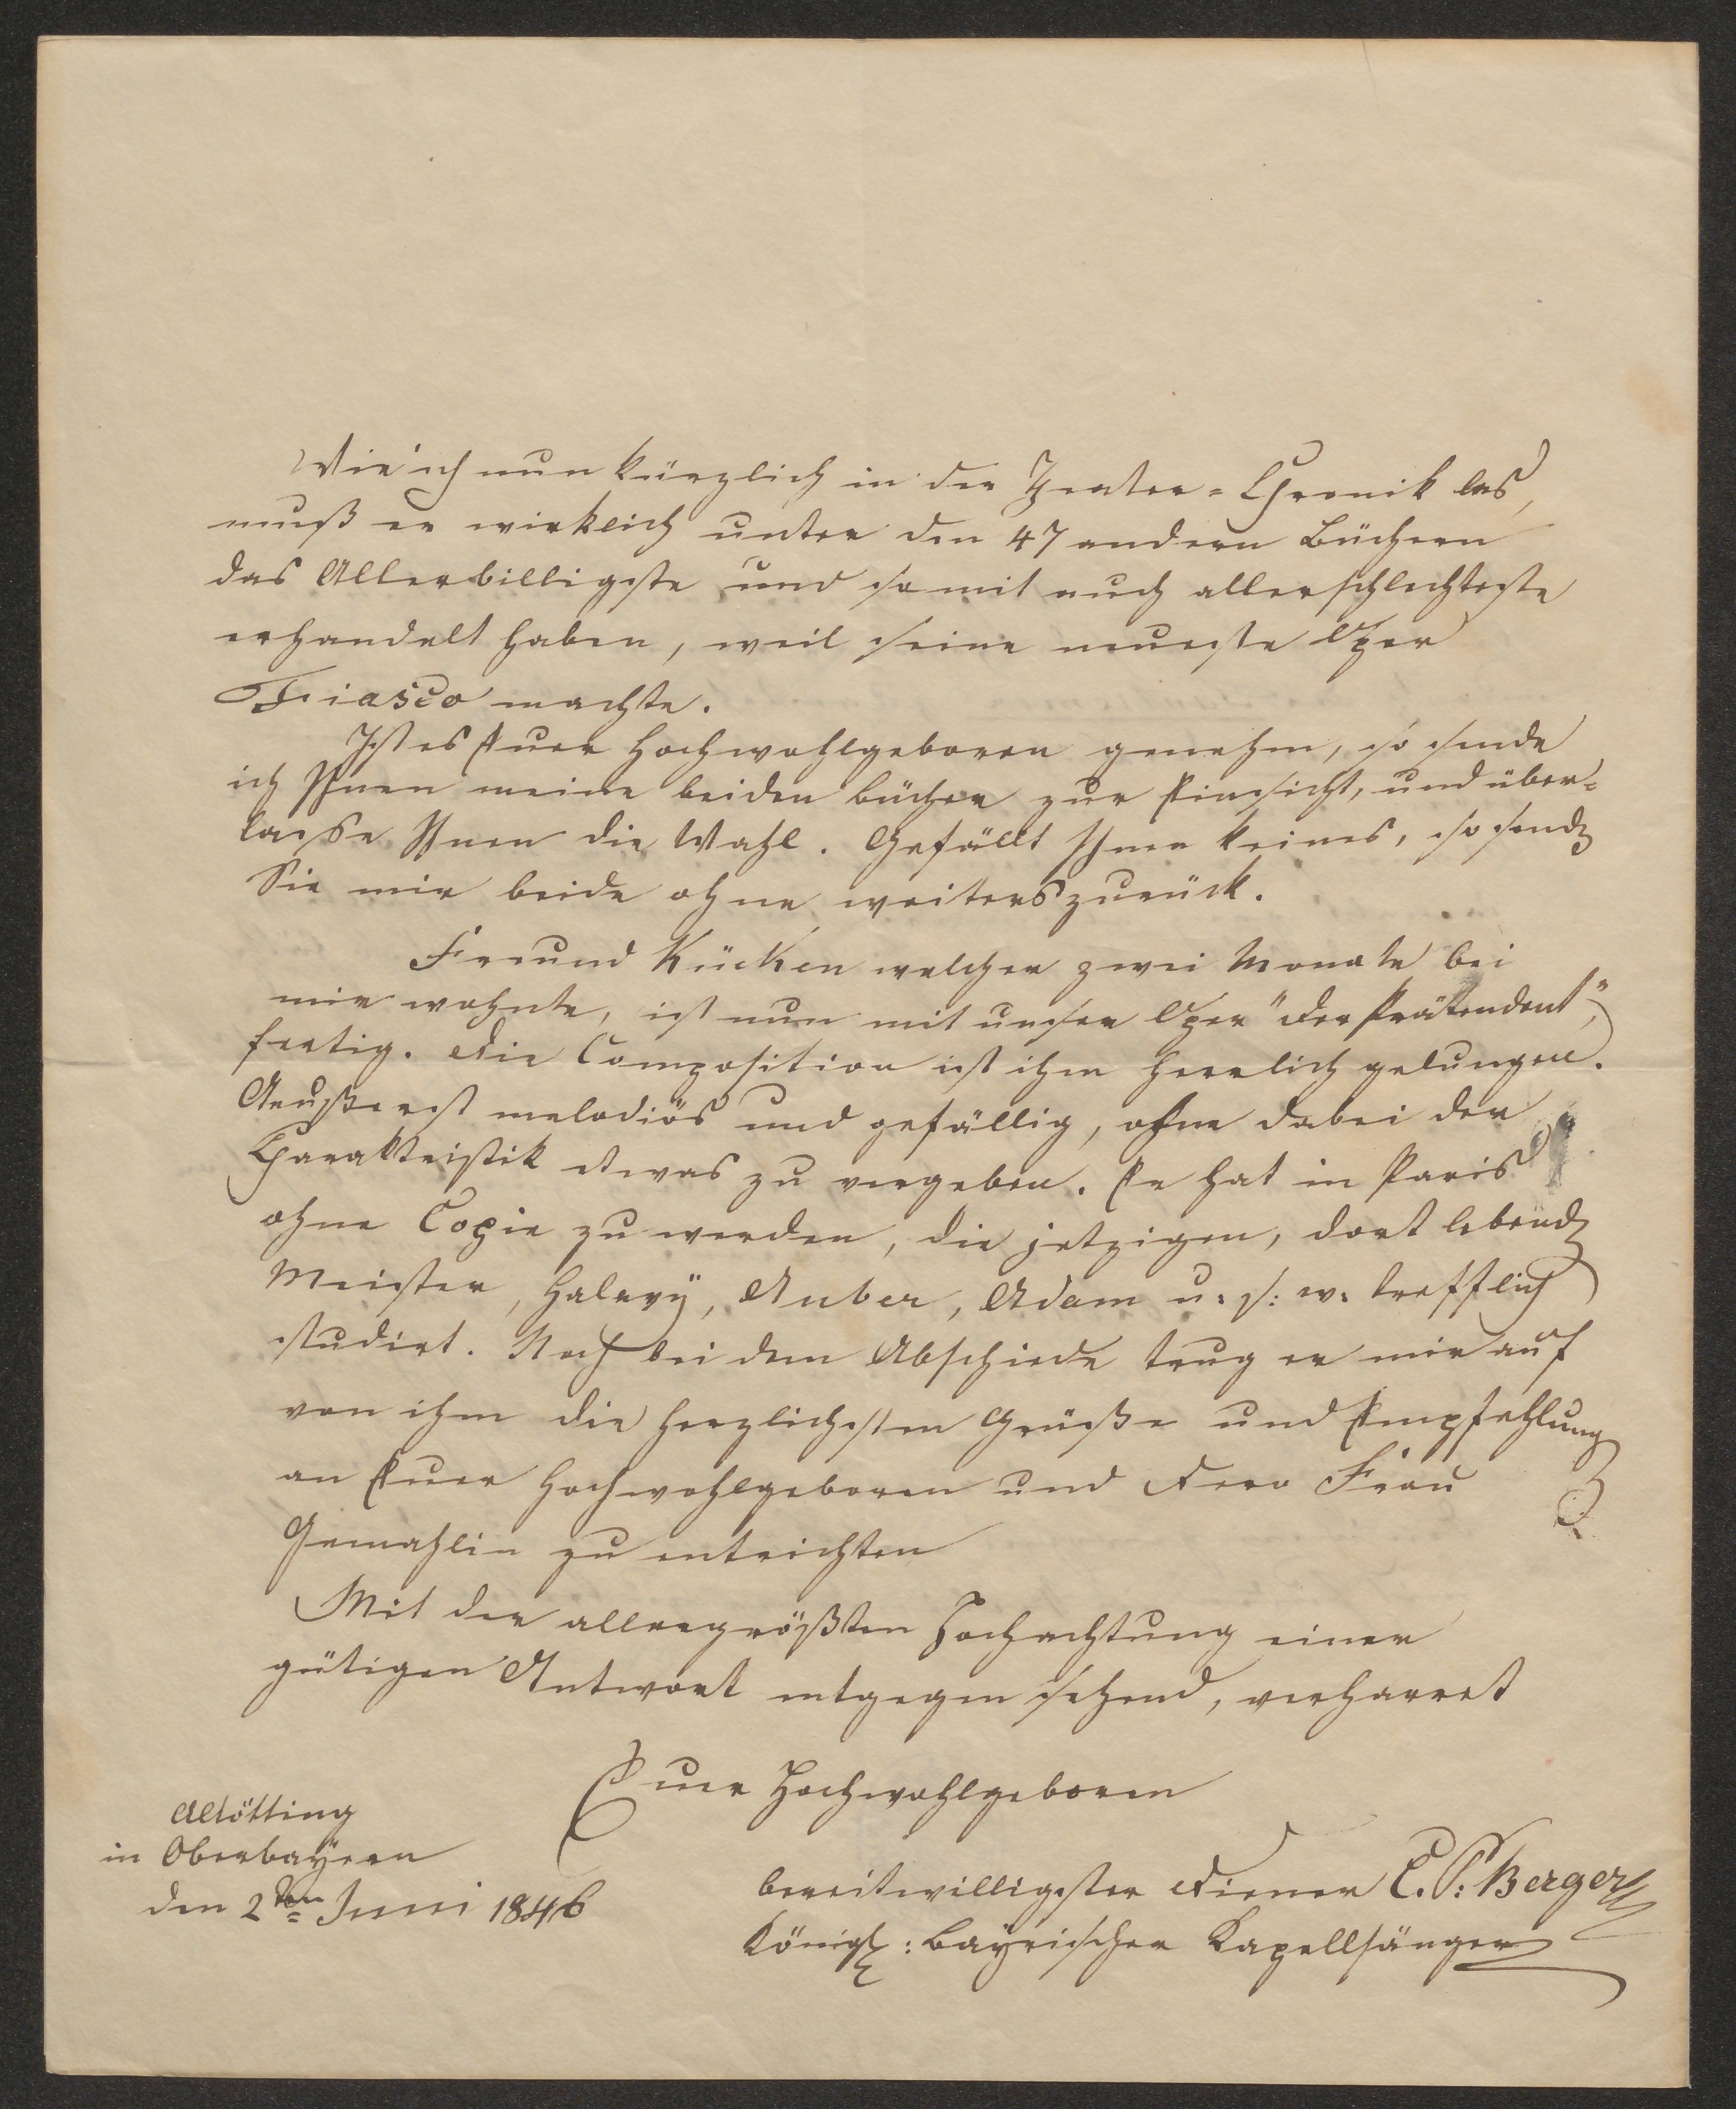 Wie ich nun kürzlich in der Theater-Chronik las,
muß er wirklich unter den 47 andern Büchern
das Allerbilligste und somit auch allerschlechteste
erhandelt haben, weil seine neueste Oper
Fiasco machte.
Ist es Euer Hochwohlgeboren genehm, so sende
ich Ihnen meine beiden Bücher zur Einsicht, und über-
lasse Ihnen die Wahl. Gefällt Ihnen keines, so senden
Sie mir beide ohne weiters zurück.
Freund Kücken welcher zwei Monate bei
mir wohnte, ist nun mit unsrer Oper "der Prätendent",
fertig. Die Composition ist ihm herrlich gelungen.
Aeußerst melodiös und gefällig, ohne dabei der
Charakteistik etwas zu vergeben. Er hat in Paris
ohne Copie zu werden, die jetzigen, dort lebenden
Meister, Halevÿ, Auber, Adam u. s: w. trefflich
studirt. Noch bei dem Abschiede trug er mir auf
von ihm die herzlichsten Grüße und Empfehlung
an Euer Hochwohlgeboren und Dero Frau
Gemahlin zu entrichten
Mit der allergrößten Hochachtung einer
gütigen Antwort entgegen sehend, verharret
Euer Hochwohlgeboren
Altötting
in Oberbayern
den 2ten Juni 1846
bereitwilligster Diener C. P: Berger
Königl: bayrischer Kapellsänger